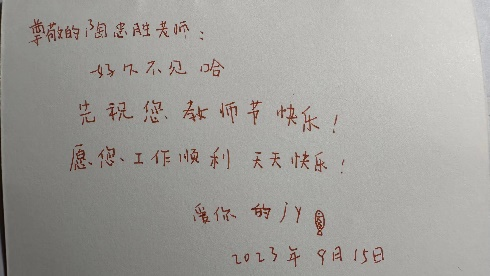 尊敬的陶忠胜老师：
好久不见哈
先祝您教师节快乐！
愿您工作顺利 天天快乐！
爱你的jy
2023年9月15日